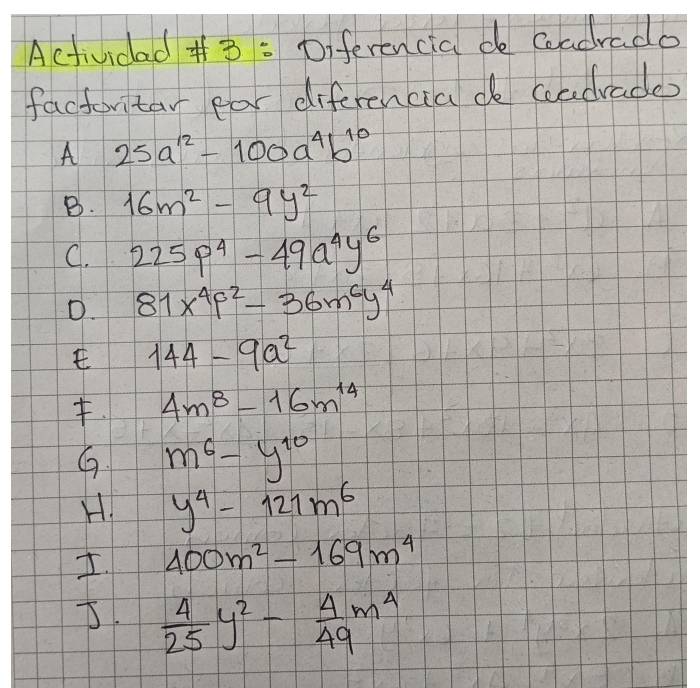 Actividad # 3 : Diferencia de Cuadrado
factoritar por diferencia de cuadrados
A 25a¹² - 100a⁴b¹⁰
B. 16m² - 9y²
C. 225p⁴ - 49a⁴y⁶
D. 81x⁴p² - 36m⁶y⁴
E 144 - 9a²
F. 4m⁸ - 16m¹⁴
G. m⁶ - y¹⁰
H. y⁴ - 121m⁶
I. 400m² - 169m⁴
J. 4/25 y² - 4/49 m⁴